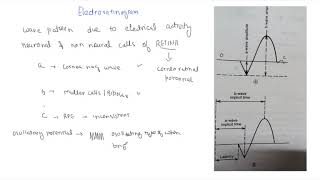 Electroretinogram
wave pattern due to electrical activity
neuronal & non neural cells of RETINA
a → Cornea neg wave
corneoretinal
potential
b → muller cells / Bipolar
C → RPE → inconsistent
oscillatory potential →
when
a-wave amplitude
b-wave
O
C
Ⓐ
b-wave
implicit time
a-wave
implicit time
Latency
Ⓑ